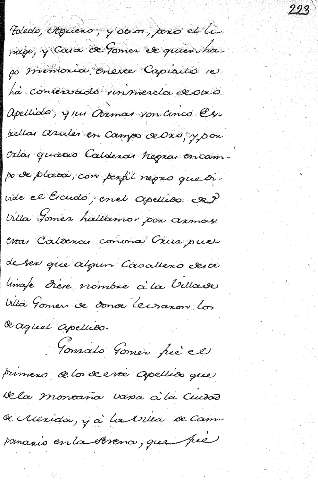 223
Toledo, Aguero, y otros, pero el li-
nage, y Casa de Gomez de quien ha-
go memoria, en este Capitulo se
há conservado sin mezcla de otro
Apellido, y sus Armas son Cinco Es-
trellas Azules en campo de oro, y por
orlas quatro Calderas Negras en cam-
po de plata, con perfil negro que di-
vide el Escudo; en el Apellido de
Villa Gomez hallamos por armas
estas Calderas con una Cruz, puede
ser que algun Cavallero deste
linaje diese nombre à la Villa de
Villa Gomez de donde tomaron los
de aquel Apellido.
Gonzalo Gomez fué el
primero de los de este Apellido que
de la Montaña vaxo à la Ciudad
de Merida, y à la Villa de Cam-
panario en la Serena, que fué